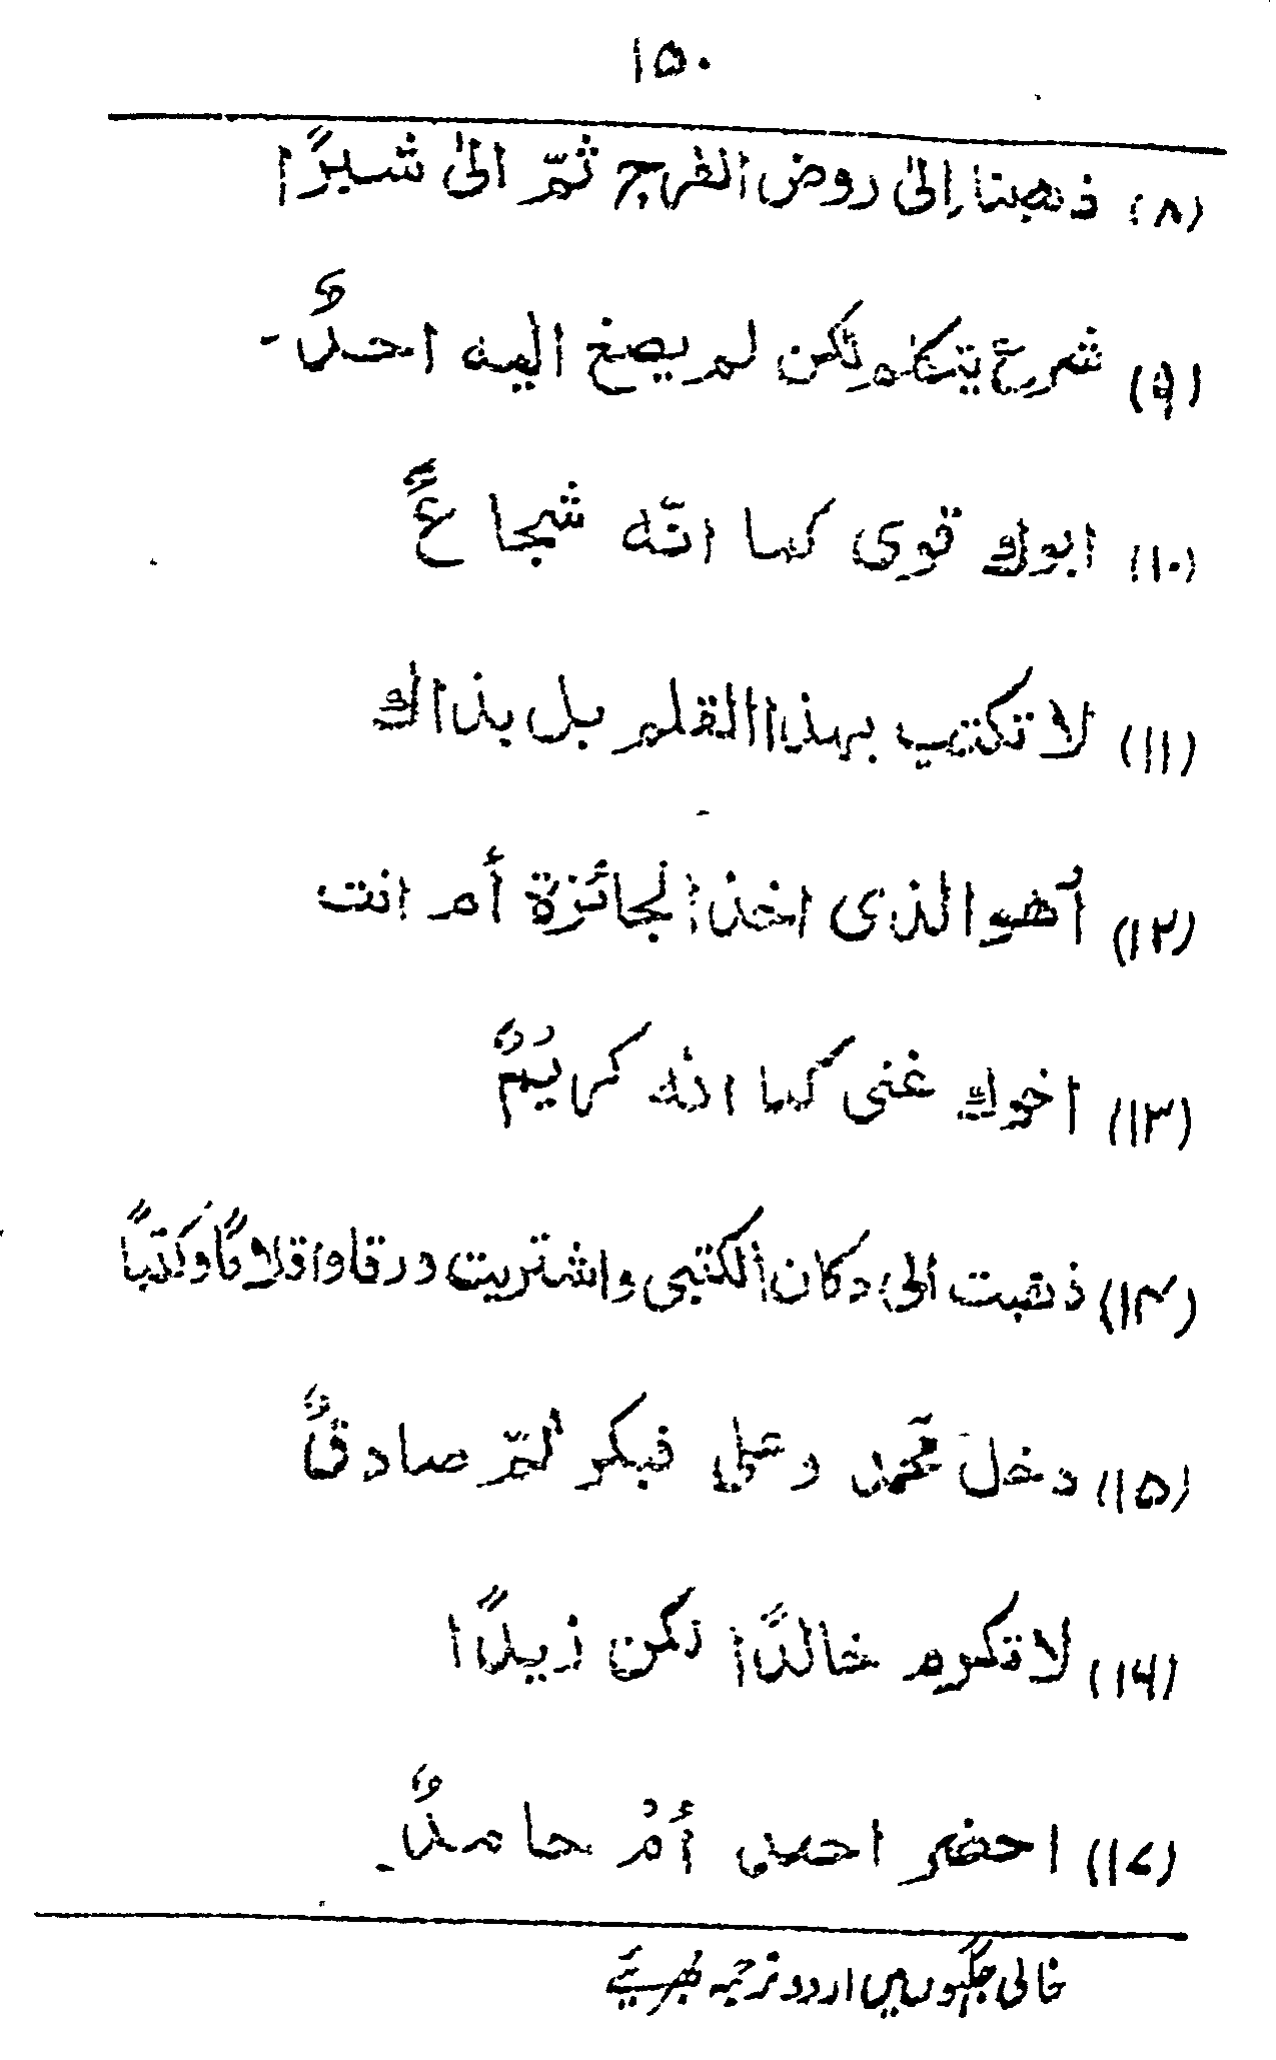 ۱۵۰
(۸) ذهبنا إلىٰ روض الفرج ثمّ الىٰ شبرًا
(۹) شرع يتكلم لكن لم يصغ اليه احدٌ۔
(۱۰) ابوك قوى كما انّه شجاعٌ
(۱۱) لا تكتب بهذا القلم بل بذاك
(۱۲) أهو الذى اخذ الجائزة أم انت
(۱۳) اخوك غنى كما انه كريمٌ
(۱۴) ذهبت الى دكان الكتبى واشتريت ورقا واقلامًا وكتبًا
(۱۵) دخل محمّد وعلى فبكر ثمّ صادقٌ
(۱۶) لا تكرم خالدًا لكن زيدًا
(۱۷) احضر احمد أمْ حامدٌ۔
خالی جگہوں میں اردو ترجمہ بھریئے